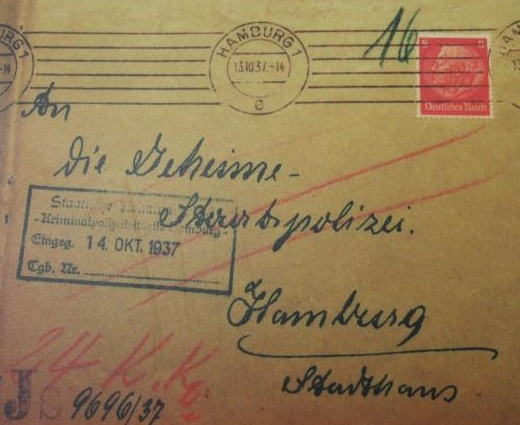 HAMBURG 1
13.10.37.-14
e
16
Deutsches Reich
An
die Geheime-
Staatspolizei.
Staatliche
-Kriminalpolizeileitstelle Hamburg-
Eingeg. 14. OKT. 1937
Tgb. Nr.
Hamburg
Stadthaus
24 K.K.
JS 9696/37